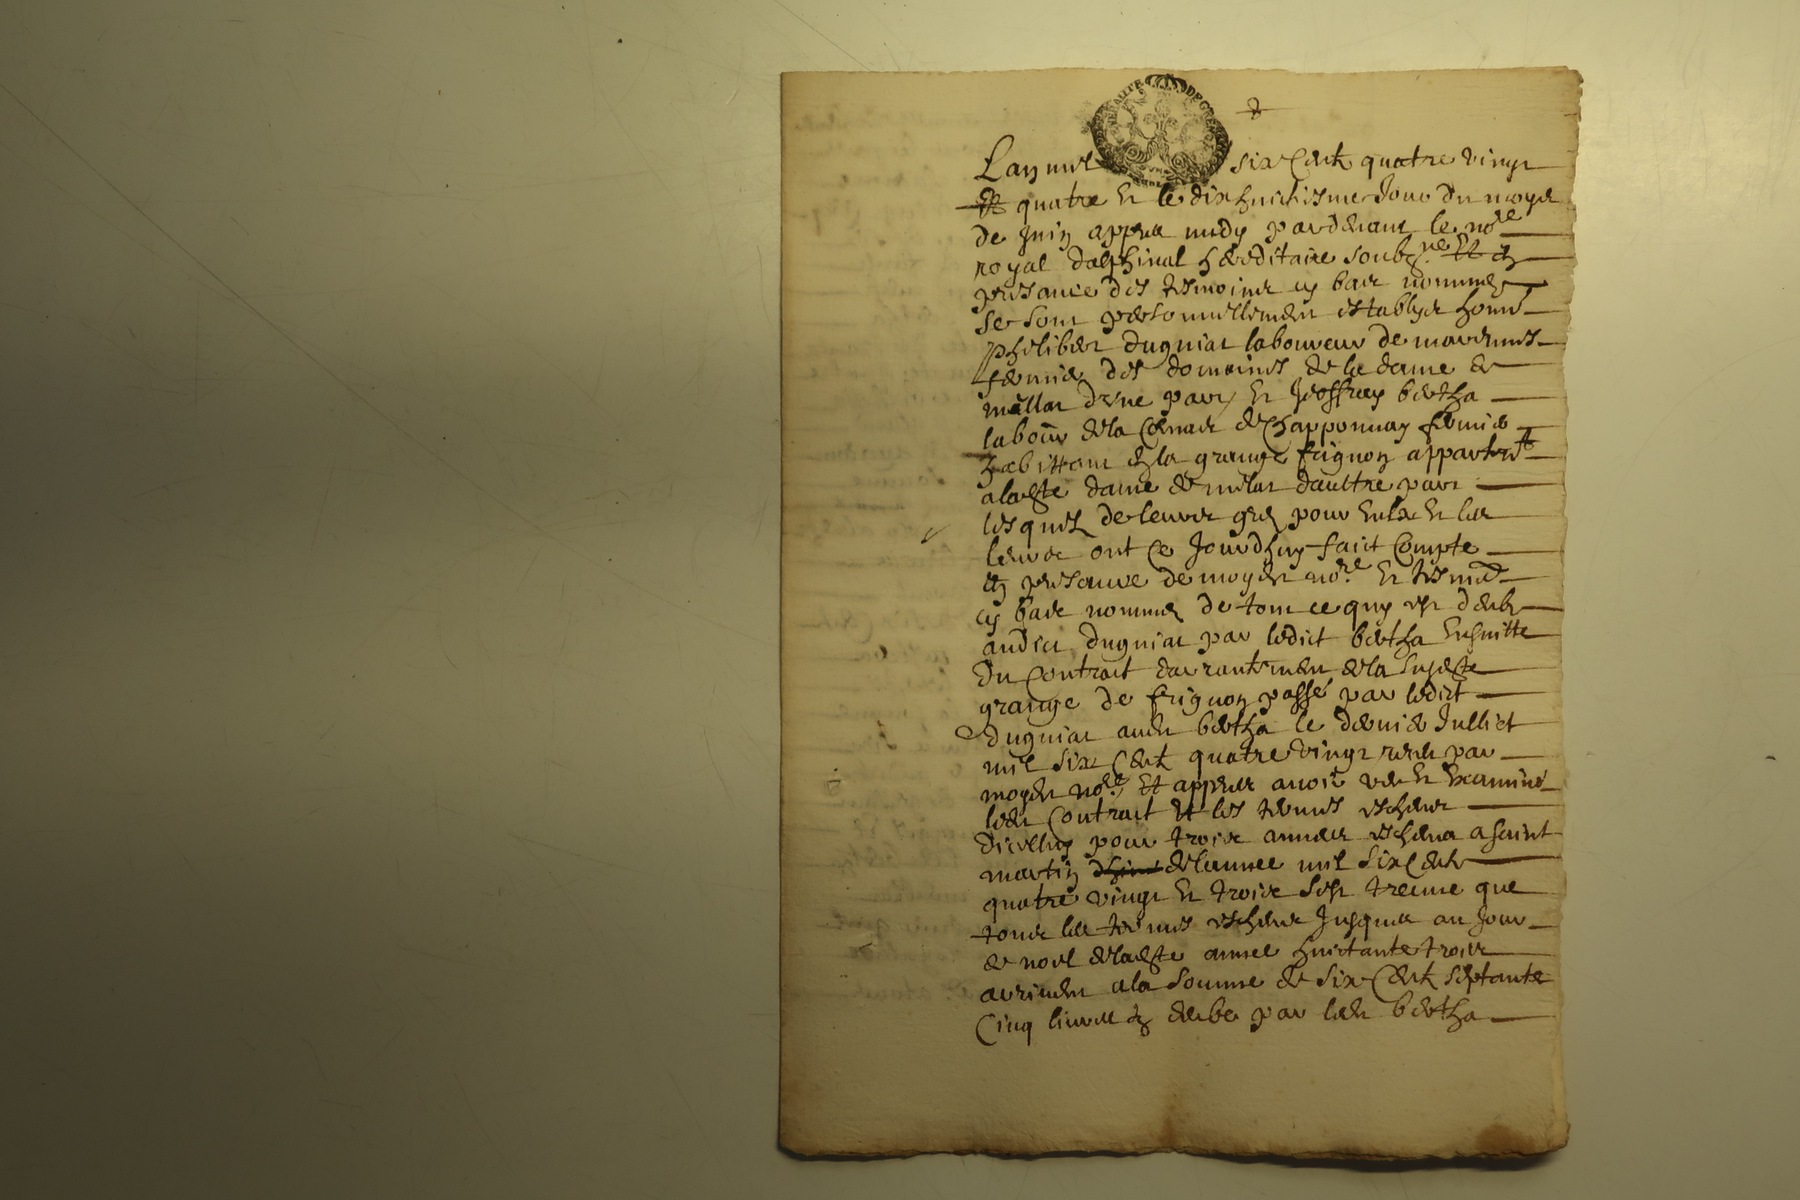 Lan mil six Centz quatre vingt
quatre Et le dixhuictiesme Jour du moys
de Juin appres midy pardevant le no.re
royal dalphinal hereditaire soubz.ne
presance des tesmoins cy bas nommes
se sont personnellement establys honn.
philibert dugniat laboureur de marennes
fermier des domaines de la dame de
millat d'vne part, Et Jeoffrey bertha
labour de la de Chapponnay fermier
habittant en la grange frignon appartent
a la dte dame de milat daultre part
lesquelz de leurs grez pour Eulx Et les
leurs ont Ce Jourdhuy faict Compte
En presance de moydt no.re Et tesms
cy bas nommez de tout ce quy est deub
audict dugniat par ledict bertha Ensuitte
Du Contract darrantement de la susdte
grange de frignon passé par ledict
dugniat audt bertha le dernier Julliet
mil six Centz quatre vingt par
moydt no.re, Et appres avoir veu Et Examiné
ledt Contract Et les termes escheus
dicelluy pour trois annees escheues a saint
martin de lannee mil six Centz
quatre vingt Et trois sest treuvé que
tous les termes escheus Jusques au Jour
de noel de ladte annee huictante trois
arrivent a la somme de six Centz septante
Cinq livres deube par ledt bertha